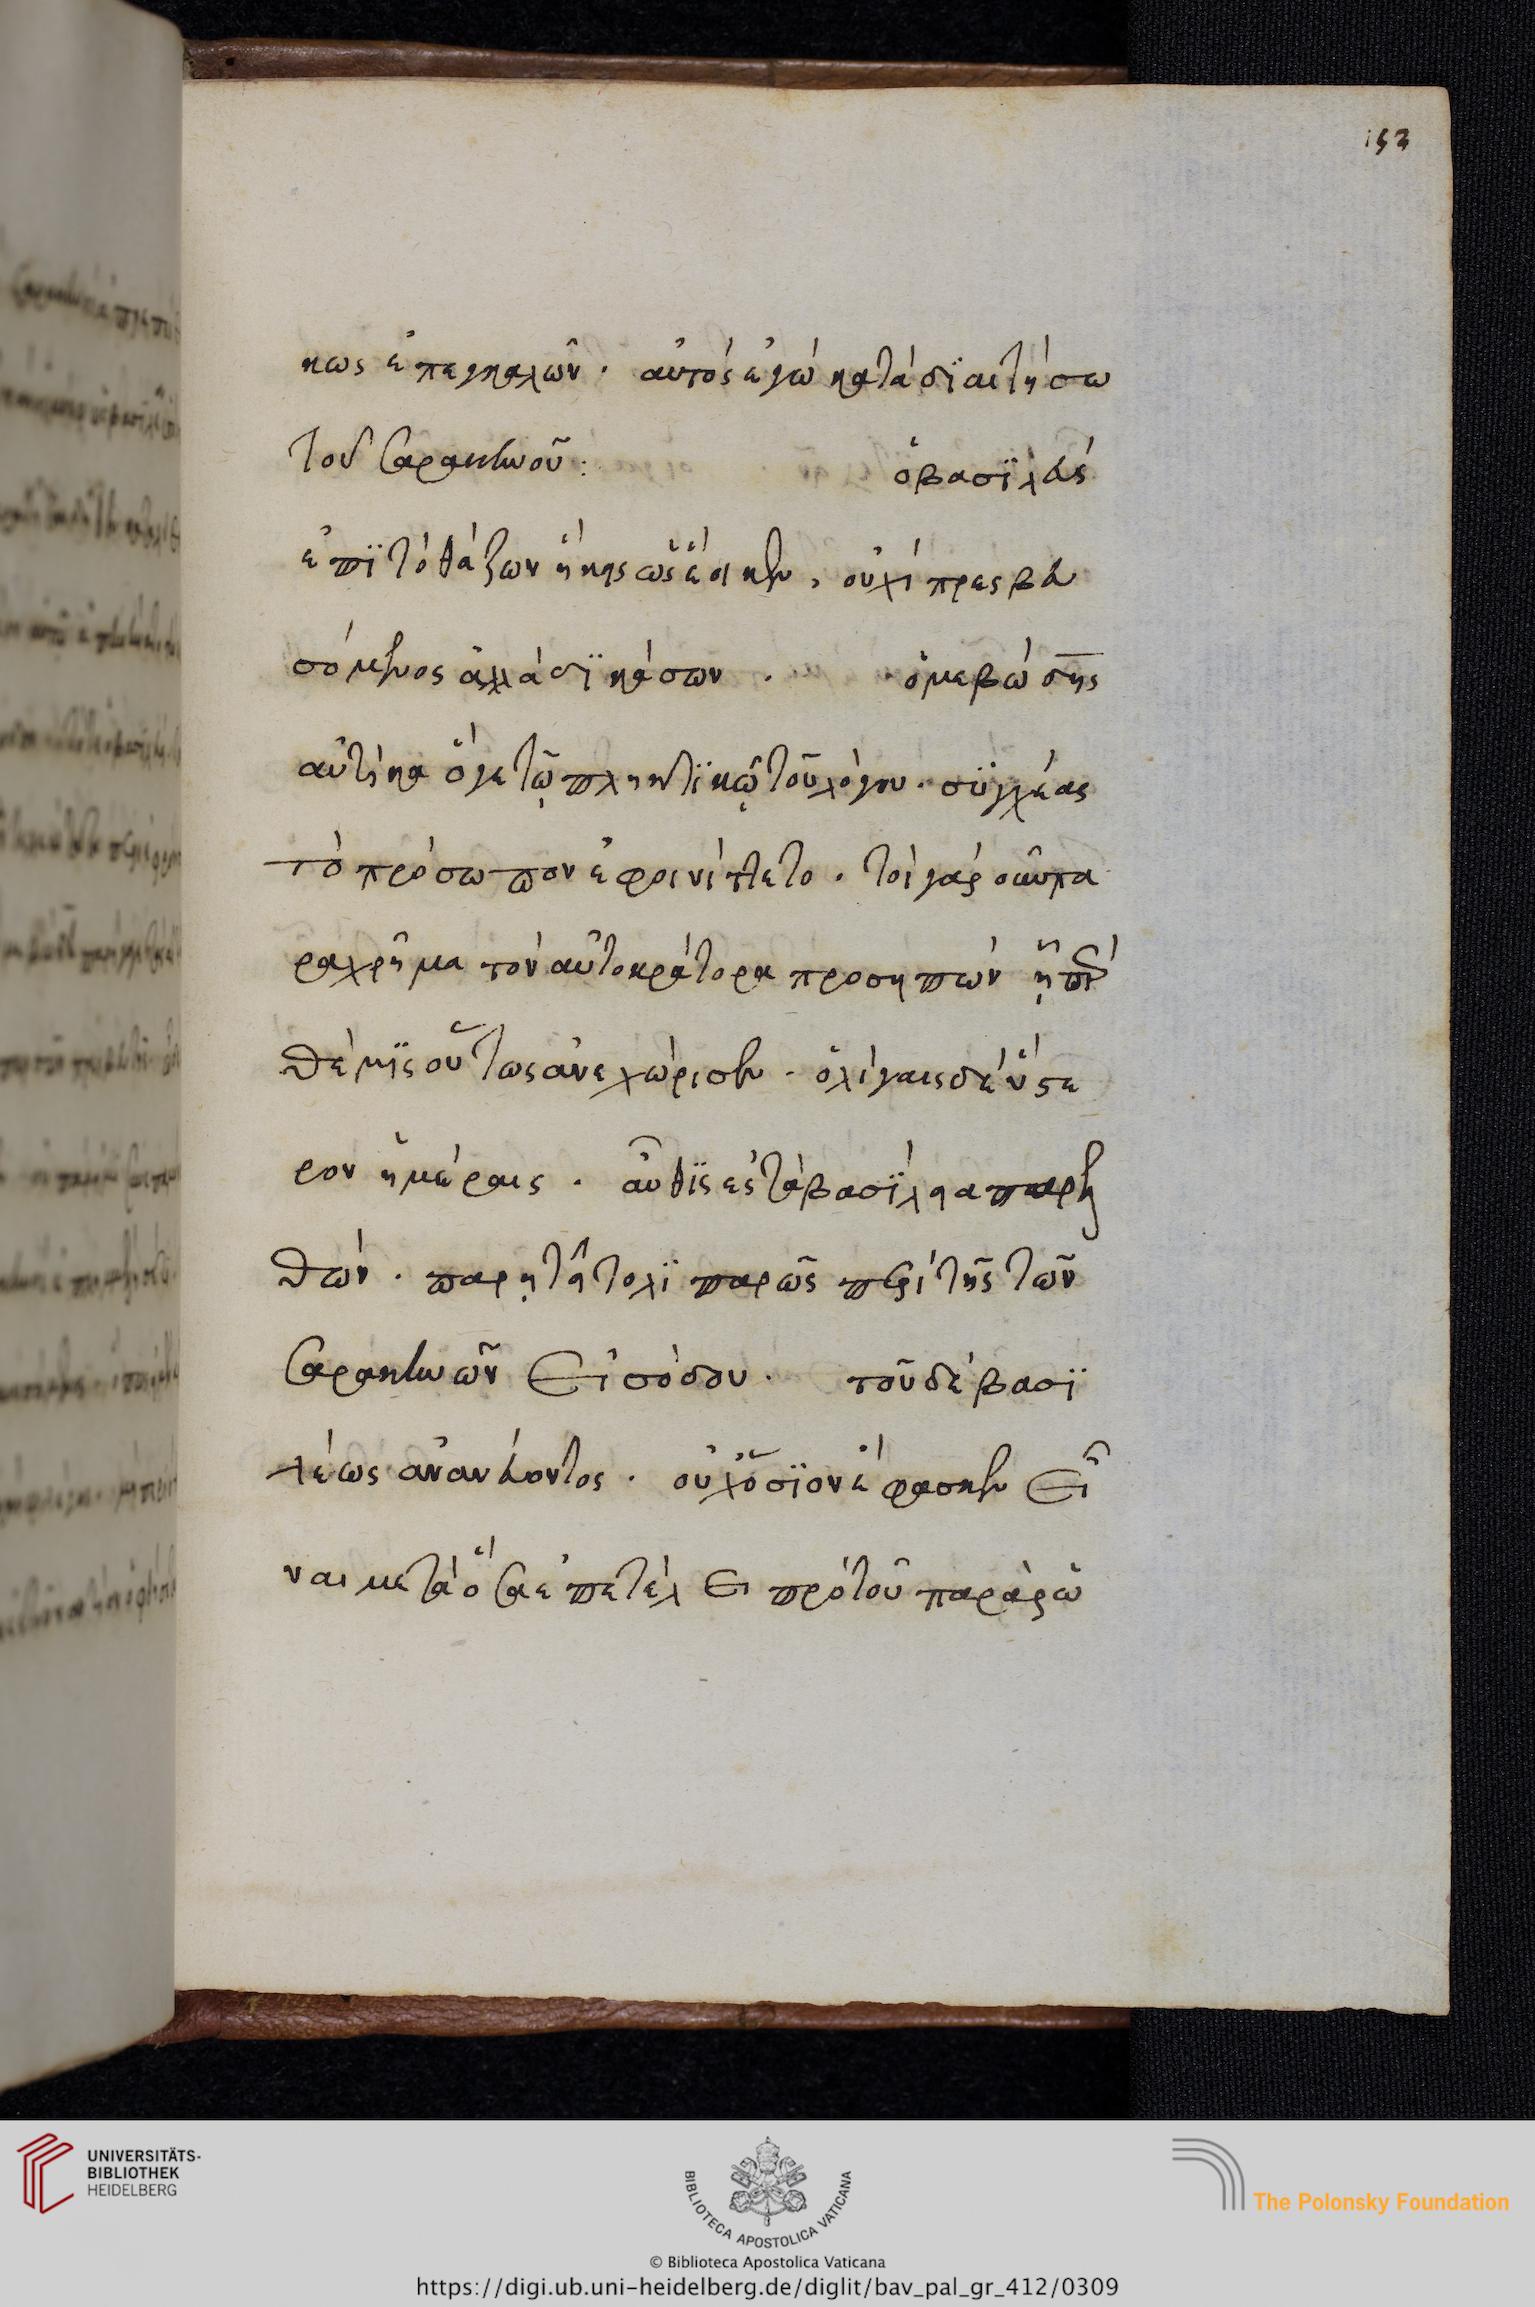 κως ἐπεγκαλῶν· αὐτὸς ἐγὼ καταδϊαιτήσω
τοῦ Σαρακηνοῦ: ὁ βασϊλεύς
ἐπϊτὸθάζων ἥκεις ὡς ἔοικεν, οὐχὶ πρεσβευ
σόμενος ἀλλὰ δϊκάσων · ὁ μεβώδης
αὐτίκα ὅγε τῷ πληκτϊκῷ τοῦ λόγου · συγχέας
τὸ πρόσωπον ἐφοινίττετο · τοιγάρ οὖν πα
ραχρῆμα τὸν αὐτοκράτορα προσειπὼν ᾗπερ
θέμϊς οὕτως ἀνεχώρισεν · ὀλίγαις δὲ ὕστε
ρον ἡμέραις · αὖθϊς ἐς τὰ βασϊλεια παρελ
θών · παρῃτεῖτο λϊπαρῶς περὶ τῆς τῶν
Σαρακηνῶν εἰσόδου · τοῦ δὲ βασϊ
λέως ἀνανεύοντος · οὐχ ὅσϊον ἔφασκεν εἶ
ναι μετὰ ὅσα ἐπετέλει πρὸ τοῦ παρὰ ῥω
152
UNIVERSITÄTS-
BIBLIOTHEK
HEIDELBERG
BIBLIOTECA APOSTOLICA VATICANA
The Polonsky Foundation
© Biblioteca Apostolica Vaticana
https://digi.ub.uni-heidelberg.de/diglit/bav_pal_gr_412/0309